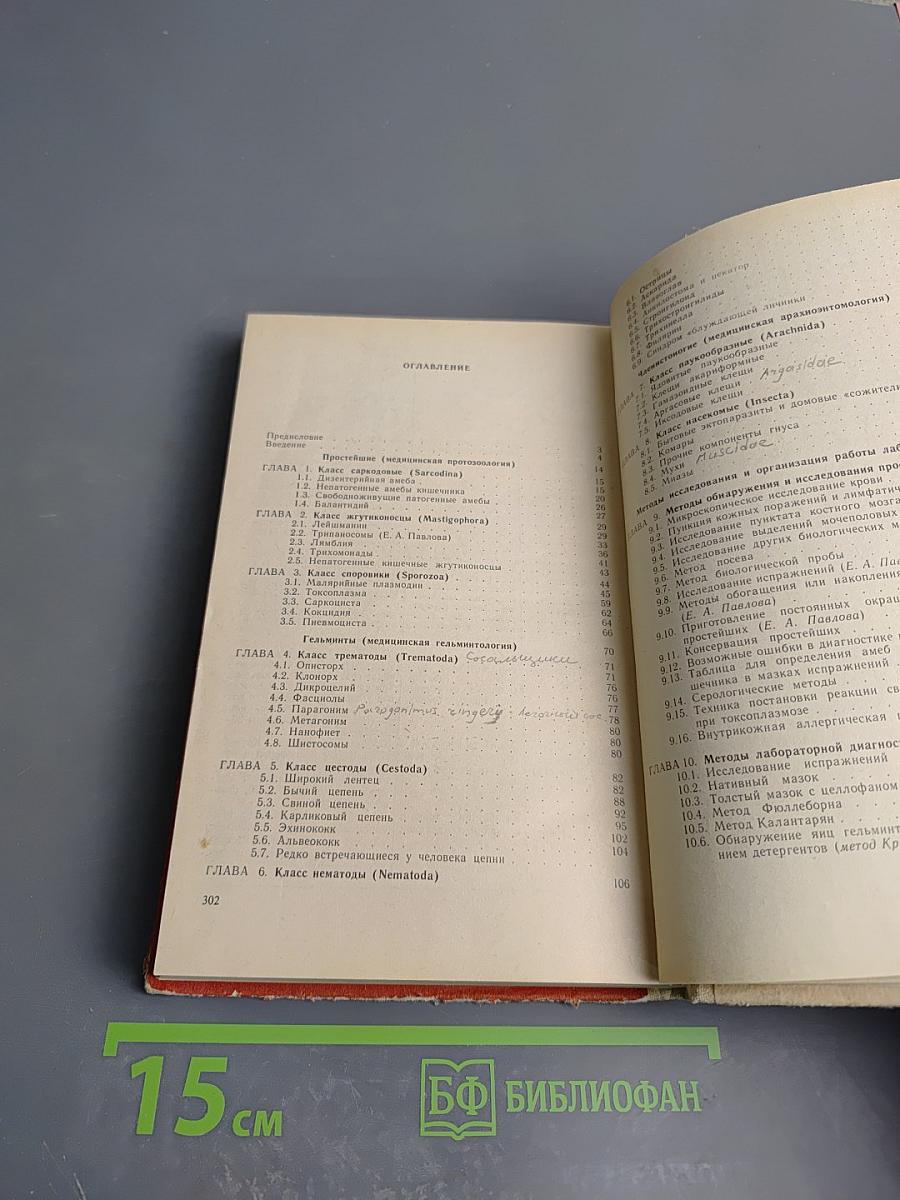 ОГЛАВЛЕНИЕ
Предисловие 3
Введение 4
Простейшие (медицинская протозоология) 14
ГЛАВА 1. Класс саркодовые (Sarcodina) 15
1.1. Дизентерийная амеба 15
1.2. Непатогенные амебы кишечника 20
1.3. Свободноживущие патогенные амебы 26
1.4. Балантидий 27
ГЛАВА 2. Класс жгутиконосцы (Mastigophora) 29
2.1. Лейшмании 29
2.2. Трипаносомы (Е. А. Павлова) 33
2.3. Лямблия 36
2.4. Трихомонады 41
2.5. Непатогенные кишечные жгутиконосцы 43
ГЛАВА 3. Класс споровики (Sporozoa) 44
3.1. Малярийные плазмодии 45
3.2. Токсоплазма 59
3.3. Саркоциста 62
3.4. Кокцидия 64
3.5. Пневмоциста 66
Гельминты (медицинская гельминтология) 70
ГЛАВА 4. Класс трематоды (Trematoda) Сосальщики 71
4.1. Описторх 71
4.2. Клонорх 76
4.3. Дикроцелий 76
4.4. Фасциолы 77
4.5. Парагоним 78
4.6. Метагоним 80
4.7. Нанофиет 80
4.8. Шистосомы 80
ГЛАВА 5. Класс цестоды (Cestoda) 82
5.1. Широкий лентец 82
5.2. Бычий цепень 88
5.3. Свиной цепень 92
5.4. Карликовый цепень 95
5.5. Эхинококк 102
5.6. Альвеококк 104
5.7. Редко встречающиеся у человека цепни
ГЛАВА 6. Класс нематоды (Nematoda) 106
302
6.1. Острицы
6.2. Аскарида
6.3. Власоглав
6.4. Анкилостома и некатор
6.5. Стронгилоид
6.6. Трихостронгилиды
6.7. Трихинелла
6.8. Филярии
6.9. Синдром «блуждающей личинки
Членистоногие (медицинская арахноэнтомология)
ГЛАВА 7. Класс паукообразные (Arachnida)
7.1. Ядовитые паукообразные
7.2. Клещи акариформные
7.3. Гамазоидные клещи
7.4. Аргасовые клещи Argasidae
7.5. Иксодовые клещи
ГЛАВА 8. Класс насекомые (Insecta)
8.1. Бытовые эктопаразиты и домовые «сожители
8.2. Комары
8.3. Прочие компоненты гнуса
8.4. Мухи Muscidae
8.5. Миазы
Методы исследования и организация работы
ГЛАВА 9. Методы обнаружения и исследования
9.1. Микроскопическое исследование крови
9.2. Пункция кожных поражений и
9.3. Исследование пунктата костного мозга
9.4. Исследование выделений мочеполовых
9.5. Исследование других биологических
9.6. Метод посева
9.7. Метод биологической пробы
9.8. Исследование испражнений (Е. А.
9.9. Методы обогащения или накопления
(Е. А. Павлова)
9.10. Приготовление постоянных
простейших (Е. А. Павлова)
9.11. Консервация простейших
9.12. Возможные ошибки в диагностике
9.13. Таблица для определения амеб
шечника в мазках испражнений
9.14. Серологические методы
9.15. Техника постановки реакции
при токсоплазмозе
9.16. Внутрикожная аллергическая
ГЛАВА 10. Методы лабораторной
10.1. Исследование испражнений
10.2. Нативный мазок
10.3. Толстый мазок с целлофаном
10.4. Метод Фюллеборна
10.5. Метод Калантарян
10.6. Обнаружение яиц
нием детергентов (метод
15 см
БФ БИБЛИОФАН